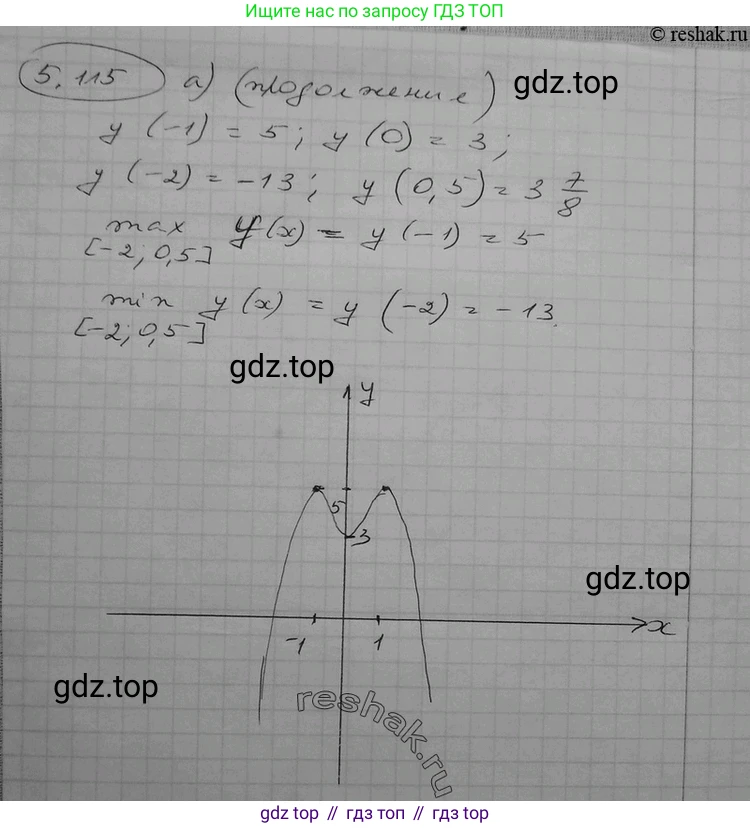 Ищет нас по запросу ГДЗ ТОП
© reshak.ru
5.115 а) (продолжение)
gdz.top
y (-1) = 5; y (0) = 3;
y (-2) = -13; y (0,5) = 3 7/8
max y(x) = y (-1) = 5
[-2; 0,5]
min y (x) = y (-2) = -13.
[-2; 0,5]
gdz.top
y
5
3
gdz.top
x
-1 1
gdz.top
reshak.ru
gdz top // гдз топ // gdz top